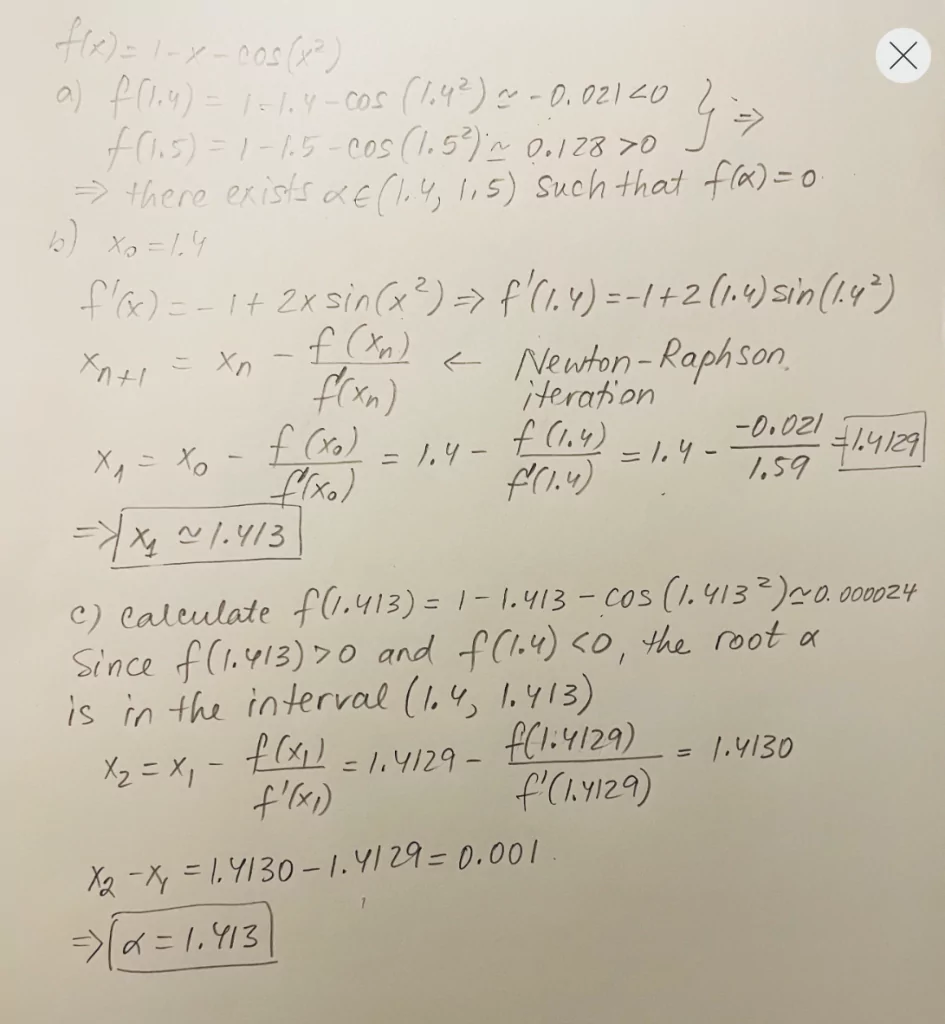 f(x) = 1 - x - cos(x²)
a) f(1.4) = 1 - 1.4 - cos (1.4²) ≃ -0.021 < 0 } ⇒
f(1.5) = 1 - 1.5 - cos(1.5²) ≃ 0.128 > 0
⇒ there exists α ∈ (1.4, 1.5) such that f(α) = 0
b) x₀ = 1.4
f'(x) = -1 + 2x sin(x²) ⇒ f'(1.4) = -1 + 2(1.4) sin(1.4²)
xₙ₊₁ = xₙ - f(xₙ) / f'(xₙ) ← Newton-Raphson
iteration
x₁ = x₀ - f(x₀) / f'(x₀) = 1.4 - f(1.4) / f'(1.4) = 1.4 - -0.021 / 1.59 = 1.4129
⇒ x₁ ≃ 1.413
c) calculate f(1.413) = 1 - 1.413 - cos(1.413²) ≃ 0.000024
Since f(1.413) > 0 and f(1.4) < 0, the root α
is in the interval (1.4, 1.413)
x₂ = x₁ - f(x₁) / f'(x₁) = 1.4129 - f(1.4129) / f'(1.4129) = 1.4130
x₂ - x₁ = 1.4130 - 1.4129 = 0.001
⇒ α = 1.413